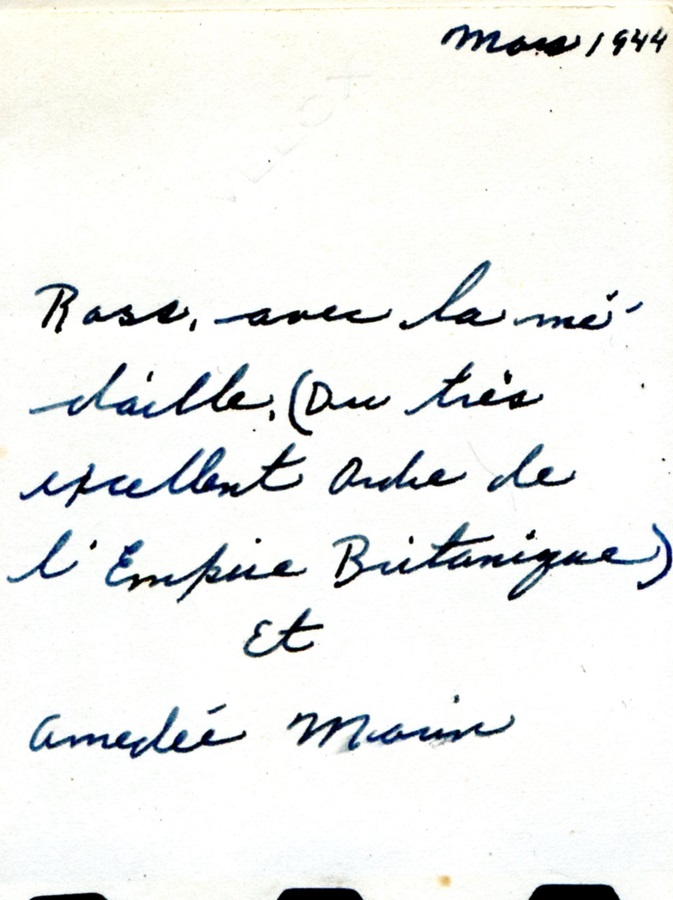 Mars 1944
Ross, avec la mé-
daille, (Du très
excellent Ordre de
l'Empire Britanique)
Et
Amedée Morin